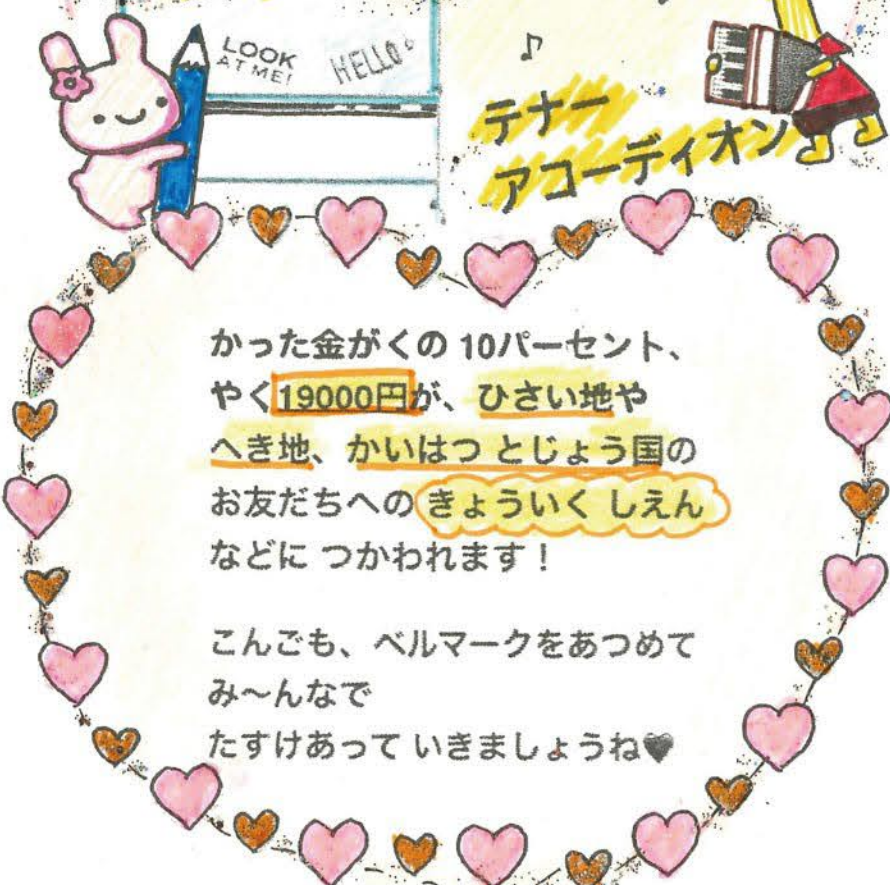 LOOK
AT ME!
HELLO
テナー
アコーディオン
かった金がくの 10パーセント、
やく19000円が、ひさい地や
へき地、かいはつ とじょう国の
お友だちへの きょういく しえん
などに つかわれます！
こんごも、ベルマークをあつめて
み～んなで
たすけあって いきましょうね♥